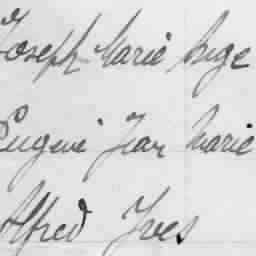 Joseph Marie Ange
Eugène Jean Marie
Alfred Yves